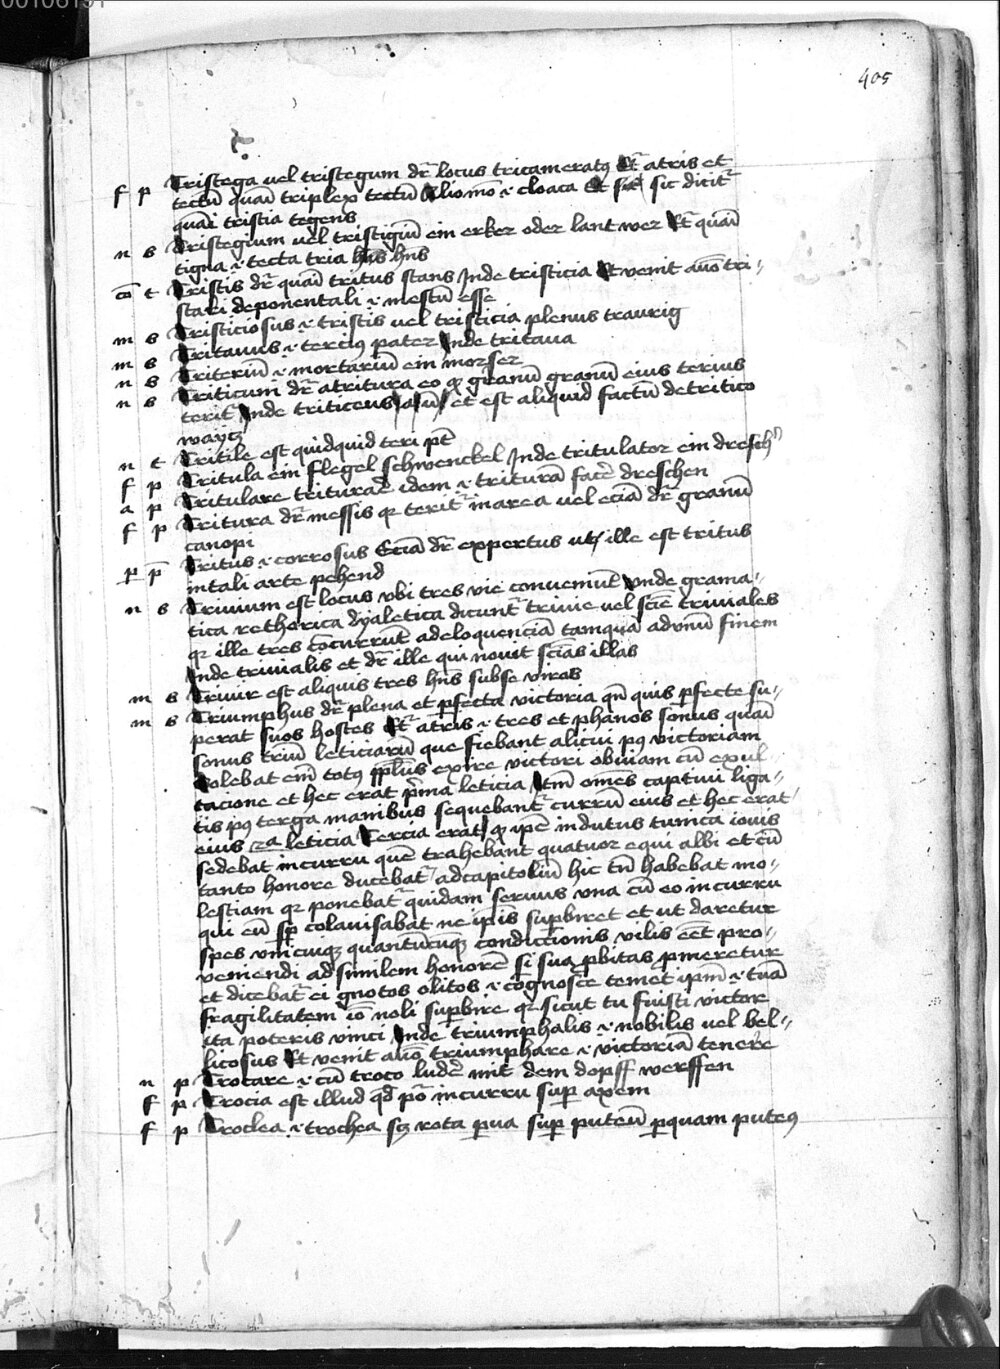 00106191
405
t.
f p Tristega vel tristegum dr̄ locus tricameratꝰ Et̄ a tris et
tectū quasi triplex tectū Alio mō ē cloaca Et sic dicit᷑
quasi tristia tegens
n s Tristegium vel tristigiū ein erker oder lantwer Et̄ quasi
tigna ē tecta tria hn̄s
cō t Tristis dr̄ quasi tritus stans Inde tristicia Et venit auō tri⸗
stari deponentali ē mestū esse
m s Tristiciosus ē tristis vel tristicia plenus traurig
m s Tritauus ē tercius pater Inde tritaua
n s Triteriū ē mortariū ein morser
n s Triticum dr̄ a tritura eo qꝫ granū granū eius terius
terit᷑ Inde triticeus /a/ū/ et est aliquid factū de tritico
waytz
n t Tritile est quidquid teri pt̄
f p Tritula ein flegel schwenckel Inde tritulator ein dresch᷑
a p Tritulare triturare idem ē triturā facē dreschen
f p Tritura dr̄ messis qꝛ terit᷑ in area vel eciā dr̄ granū
canopi
p p̄ Tritus ē corrosus Eciā dr̄ expertus utꝫ ille est tritus
in tali arte
n s Triuium est locus vbi tres vie conueniūt Vnde grama⸗
tica rethorica dyaletica dicunt᷑ triuie vel scīe triuiales
qꝛ ille tres concurrūt ad eloquenciā tamquā ad vnū finem
Inde triuialis et dr̄ ille qui nouit scīas illas
m s Triuir est aliquis tres hn̄s sub se viros
m s Triumphus dr̄ plena et ꝑfecta victoria qn̄ quis ꝑfecte su⸗
perat suos hostes Et̄ a tris ē tres et phanos sonus quasi
sonus triū leticiarū que fiebant alicui pꝰ victoriam
Solebat em̄ totꝰ ppl̄us exire victori obuiam cū exul⸗
tacione et hec erat p̄ma leticia Itm̄ om̄es captiui liga⸗
tis pꝰ terga manibus sequebant᷑ currū eius et hec erat
eius 2a leticia Tercia erat qꝫ ip̄e indutus tunica iouis
sedebat in curru quē trahebant quatuor equi albi et cū
tanto honore ducebat᷑ ad capitoliū hic tn̄ habebat mo⸗
lestiam qꝛ ponebat᷑ quidam seruus vna cū eo in curru
qui eū sp̄ colauisabat ne ip̄is supbiret et ut daretur
spes vnicuiqꝫ quantūcūqꝫ condicōnis vilis eēt pro⸗
ueniendi ad similem honorē si sua ꝓbitas ꝓmeretur
et dicebat᷑ ei gnotos olitos ē cognosce temet ip̄m ē tuā
fragilitatem iō noli supbire qꝛ sicut tu fuisti victor
ita poteris vinci Inde triumphalis ē nobilis vel bel⸗
licosus Et venit auō triumphare ē victoriā tenere
n p Trocare ē cū troco ludē mit dem dopff werffen
f p Trocia est illud qd̄ pō in curru sup axem
f p Troclea ē trochea sꝫ rota ꝑua sup puteū ꝑ quam puteꝰ